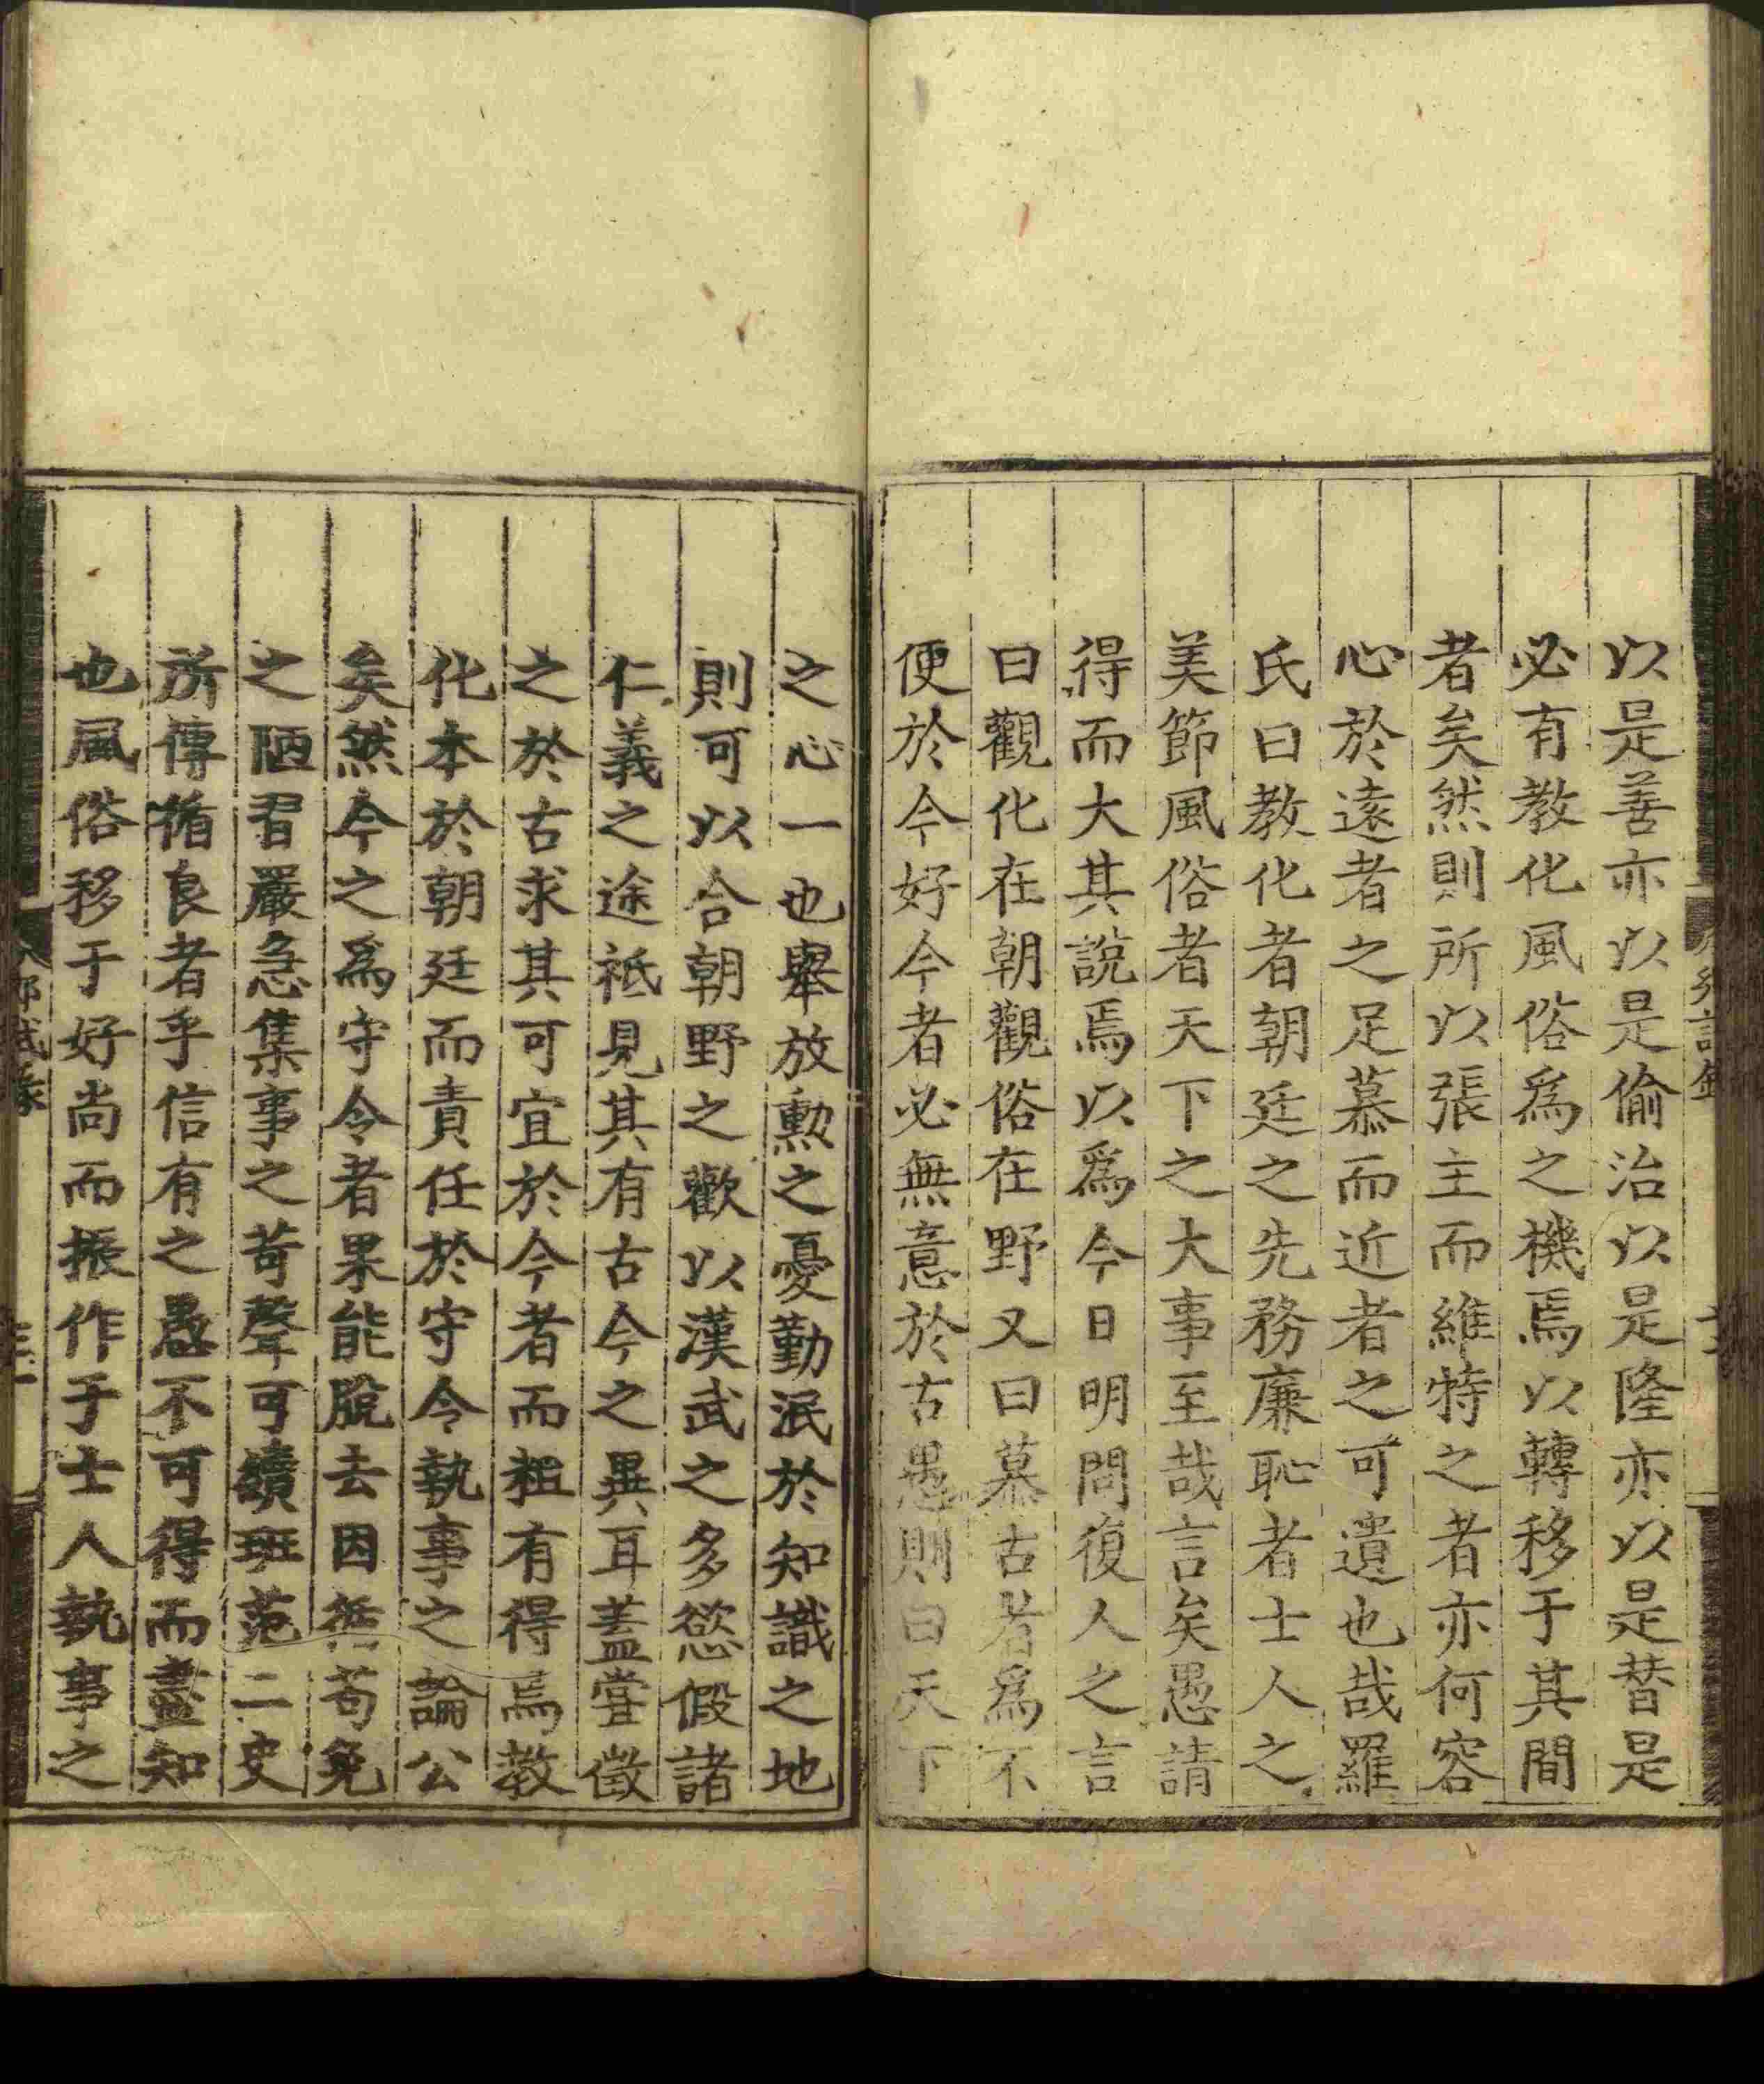 以是善亦以是偷治以是隆亦以是替是
必有教化風俗爲之機焉以轉移于其間
者矣然則所以張主而維持之者亦何容
心於遠者之足慕而近者之可遺也哉羅
氏曰教化者朝廷之先務廉恥者士人之
美節風俗者天下之大事至哉言矣愚請
得而大其說焉以爲今日明問復人之言
曰觀化在朝觀俗在野又曰慕古者爲不
便於今好今者必無意於古愚則曰天下
之心一也舉放勳之憂勤泯於知識之地
則可以合朝野之歡以漢武之多慾假諸
仁義之途祇見其有古今之異耳蓋嘗徵
之於古求其可宜於今者而粗有得焉教
化本於朝廷而責任於守令執事之論公
矣然今之爲守令者果能脫去因循苟免
之陋習嚴急集事之苛聲可續班范二史
所傳循良者乎信有之愚不可得而盡知
也風俗移于好尚而振作于士人執事之